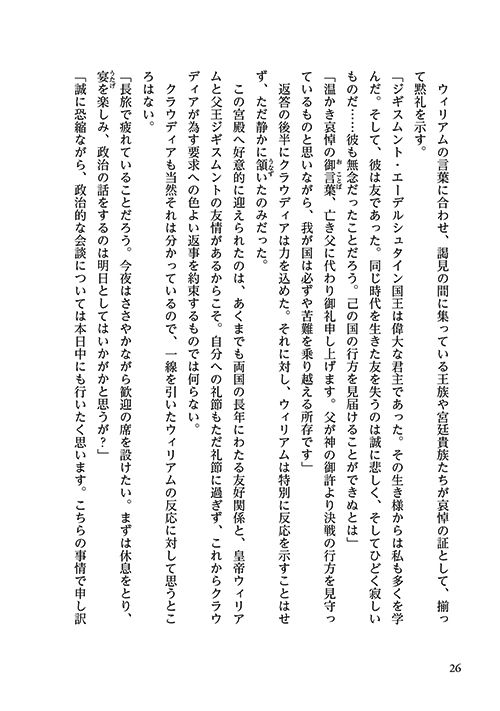 ウィリアムの言葉に合わせ、謁見の間に集っている王族や宮廷貴族たちが哀悼の証として、揃っ
て黙礼を示す。
「ジギスムント・エーデルシュタイン国王は偉大な君主であった。その生き様からは私も多くを学
んだ。そして、彼は友であった。同じ時代を生きた友を失うのは誠に悲しく、そしてひどく寂しい
ものだ……彼も無念だったことだろう。己の国の行方を見届けることができぬとは」
「温かき哀悼の御言葉、亡き父に代わり御礼申し上げます。父が神の御許より決戦の行方を見守っ
ているものと思いながら、我が国は必ずや苦難を乗り越える所存です」
返答の後半にクラウディアは力を込めた。それに対し、ウィリアムは特別に反応を示すことはせ
ず、ただ静かに頷いたのみだった。
この宮殿へ好意的に迎えられたのは、あくまでも両国の長年にわたる友好関係と、皇帝ウィリア
ムと父王ジギスムントの友情があるからこそ。自分への礼節もただ礼節に過ぎず、これからクラウ
ディアが為す要求への色よい返事を約束するものでは何らない。
クラウディアも当然それは分かっているので、一線を引いたウィリアムの反応に対して思うとこ
ろはない。
「長旅で疲れていることだろう。今夜はささやかながら歓迎の席を設けたい。まずは休息をとり、
宴を楽しみ、政治の話をするのは明日としてはいかがかと思うが？」
「誠に恐縮ながら、政治的な会談については本日中にも行いたく思います。こちらの事情で申し訳
26